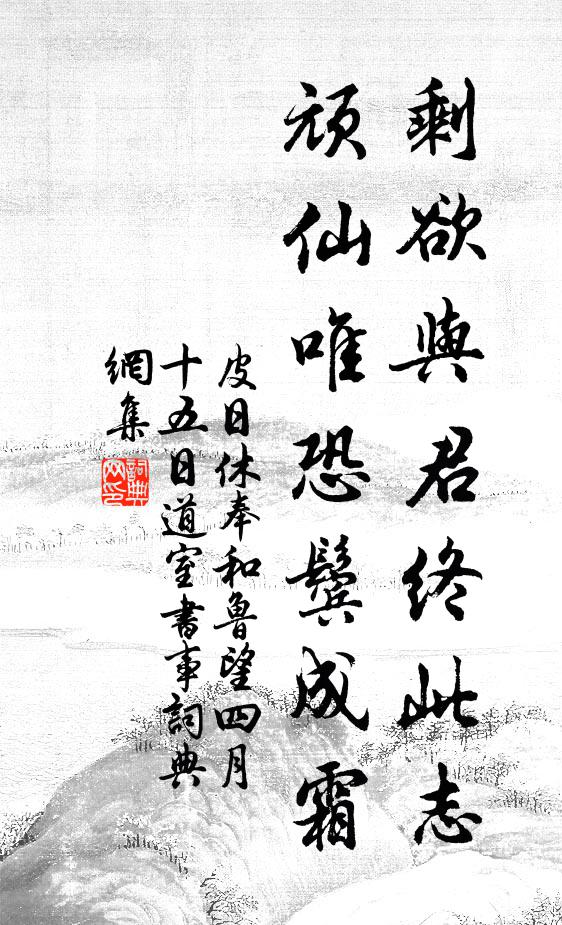 剩欲與君終此志
頑仙唯恐鬢成霜
皮日休奉和魯望四月
十五日道室書事詞典
網集
詞典
网印